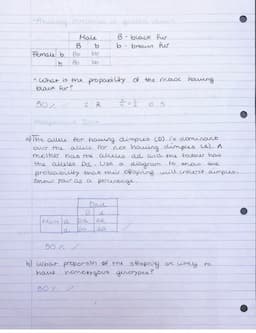 Male B - black fur
B b b - brown fur
Female b Bb bb
b Bb bb
- What is the probability of the mice having
black fur?
50 %
a) The allele for having dimples (D) is dominant
over the allele for not having dimples (d). A
mother has the alleles dd and the father has
the alleles Dd. Use a diagram to show the
probability that their offspring will inherit dimples.
Show your as a percentage.
Dad
D d
Mum d Dd dd
d Dd dd
50 %
b) What proportion of the offspring are likely to
have homozygous genotypes?
50 %